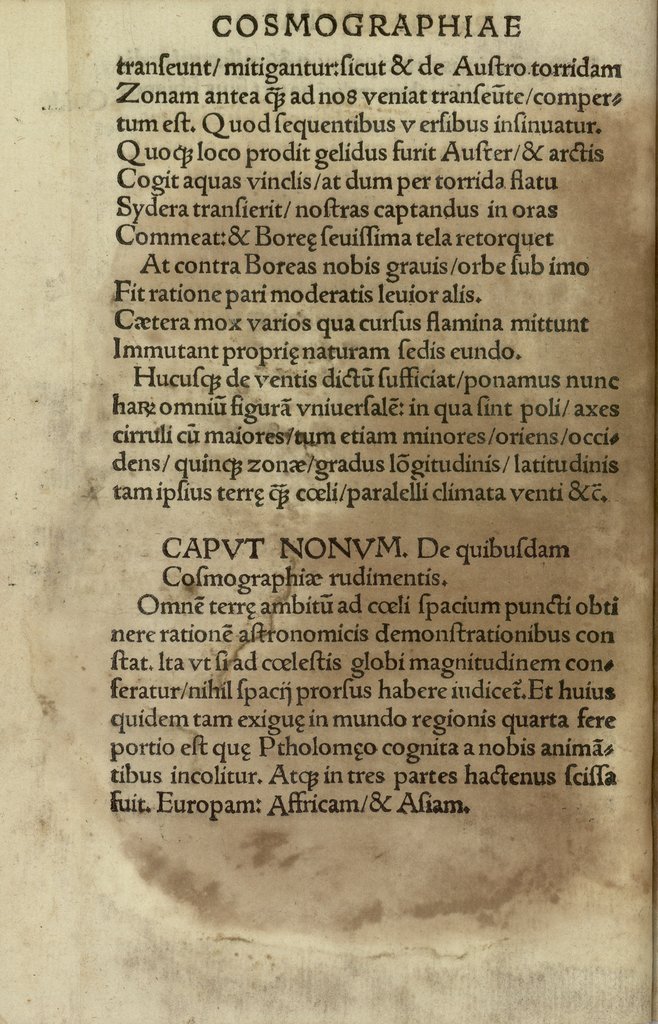 COSMOGRAPHIAE
tranſeunt/ mitigantur:ſicut & de Auſtro torridam
Zonam antea q̄ꝫ ad nos veniat tranſeūte/comper⸗
tum eſt. Quod ſequentibus verſibus inſinuatur.
Quoqꝫ loco prodit gelidus furit Auſter/& arctis
Cogit aquas vinclis/at dum per torrida flatu
Sydera tranſierit/ noſtras captandus in oras
Commeat:& Boreę ſeuiſſima tela retorquet
At contra Boreas nobis grauis/orbe ſub imo
Fit ratione pari moderatis leuior alis.
Cætera mox varios qua curſus flamina mittunt
Immutant proprię naturam ſedis eundo.
Hucuſqꝫ de ventis dictū ſufficiat/ponamus nunc
haꝝ omniū figurā vniuerſalē: in qua ſint poli/ axes
cirruli cū maiores/tum etiam minores/oriens/occi⸗
dens/ quinqꝫ zonæ/gradus lōgitudinis/ latitudinis
tam ipſius terrę q̄ꝫ cœli/paralelli climata venti &c̄.
CAPVT NONVM. De quibuſdam
Coſmographiæ rudimentis.
Omnē terrę ambitū ad cœli ſpacium puncti obti
nere rationē aſtronomicis demonſtrationibus con
ſtat. Ita vt ſi ad cœleſtis globi magnitudinem con⸗
feratur/nihil ſpacij prorſus habere iudicet̄.Et huius
quidem tam exiguę in mundo regionis quarta fere
portio eſt quę Ptholomęo cognita a nobis animā⸗
tibus incolitur. Atqꝫ in tres partes hactenus ſciſſa
fuit. Europam: Affricam/& Aſiam.